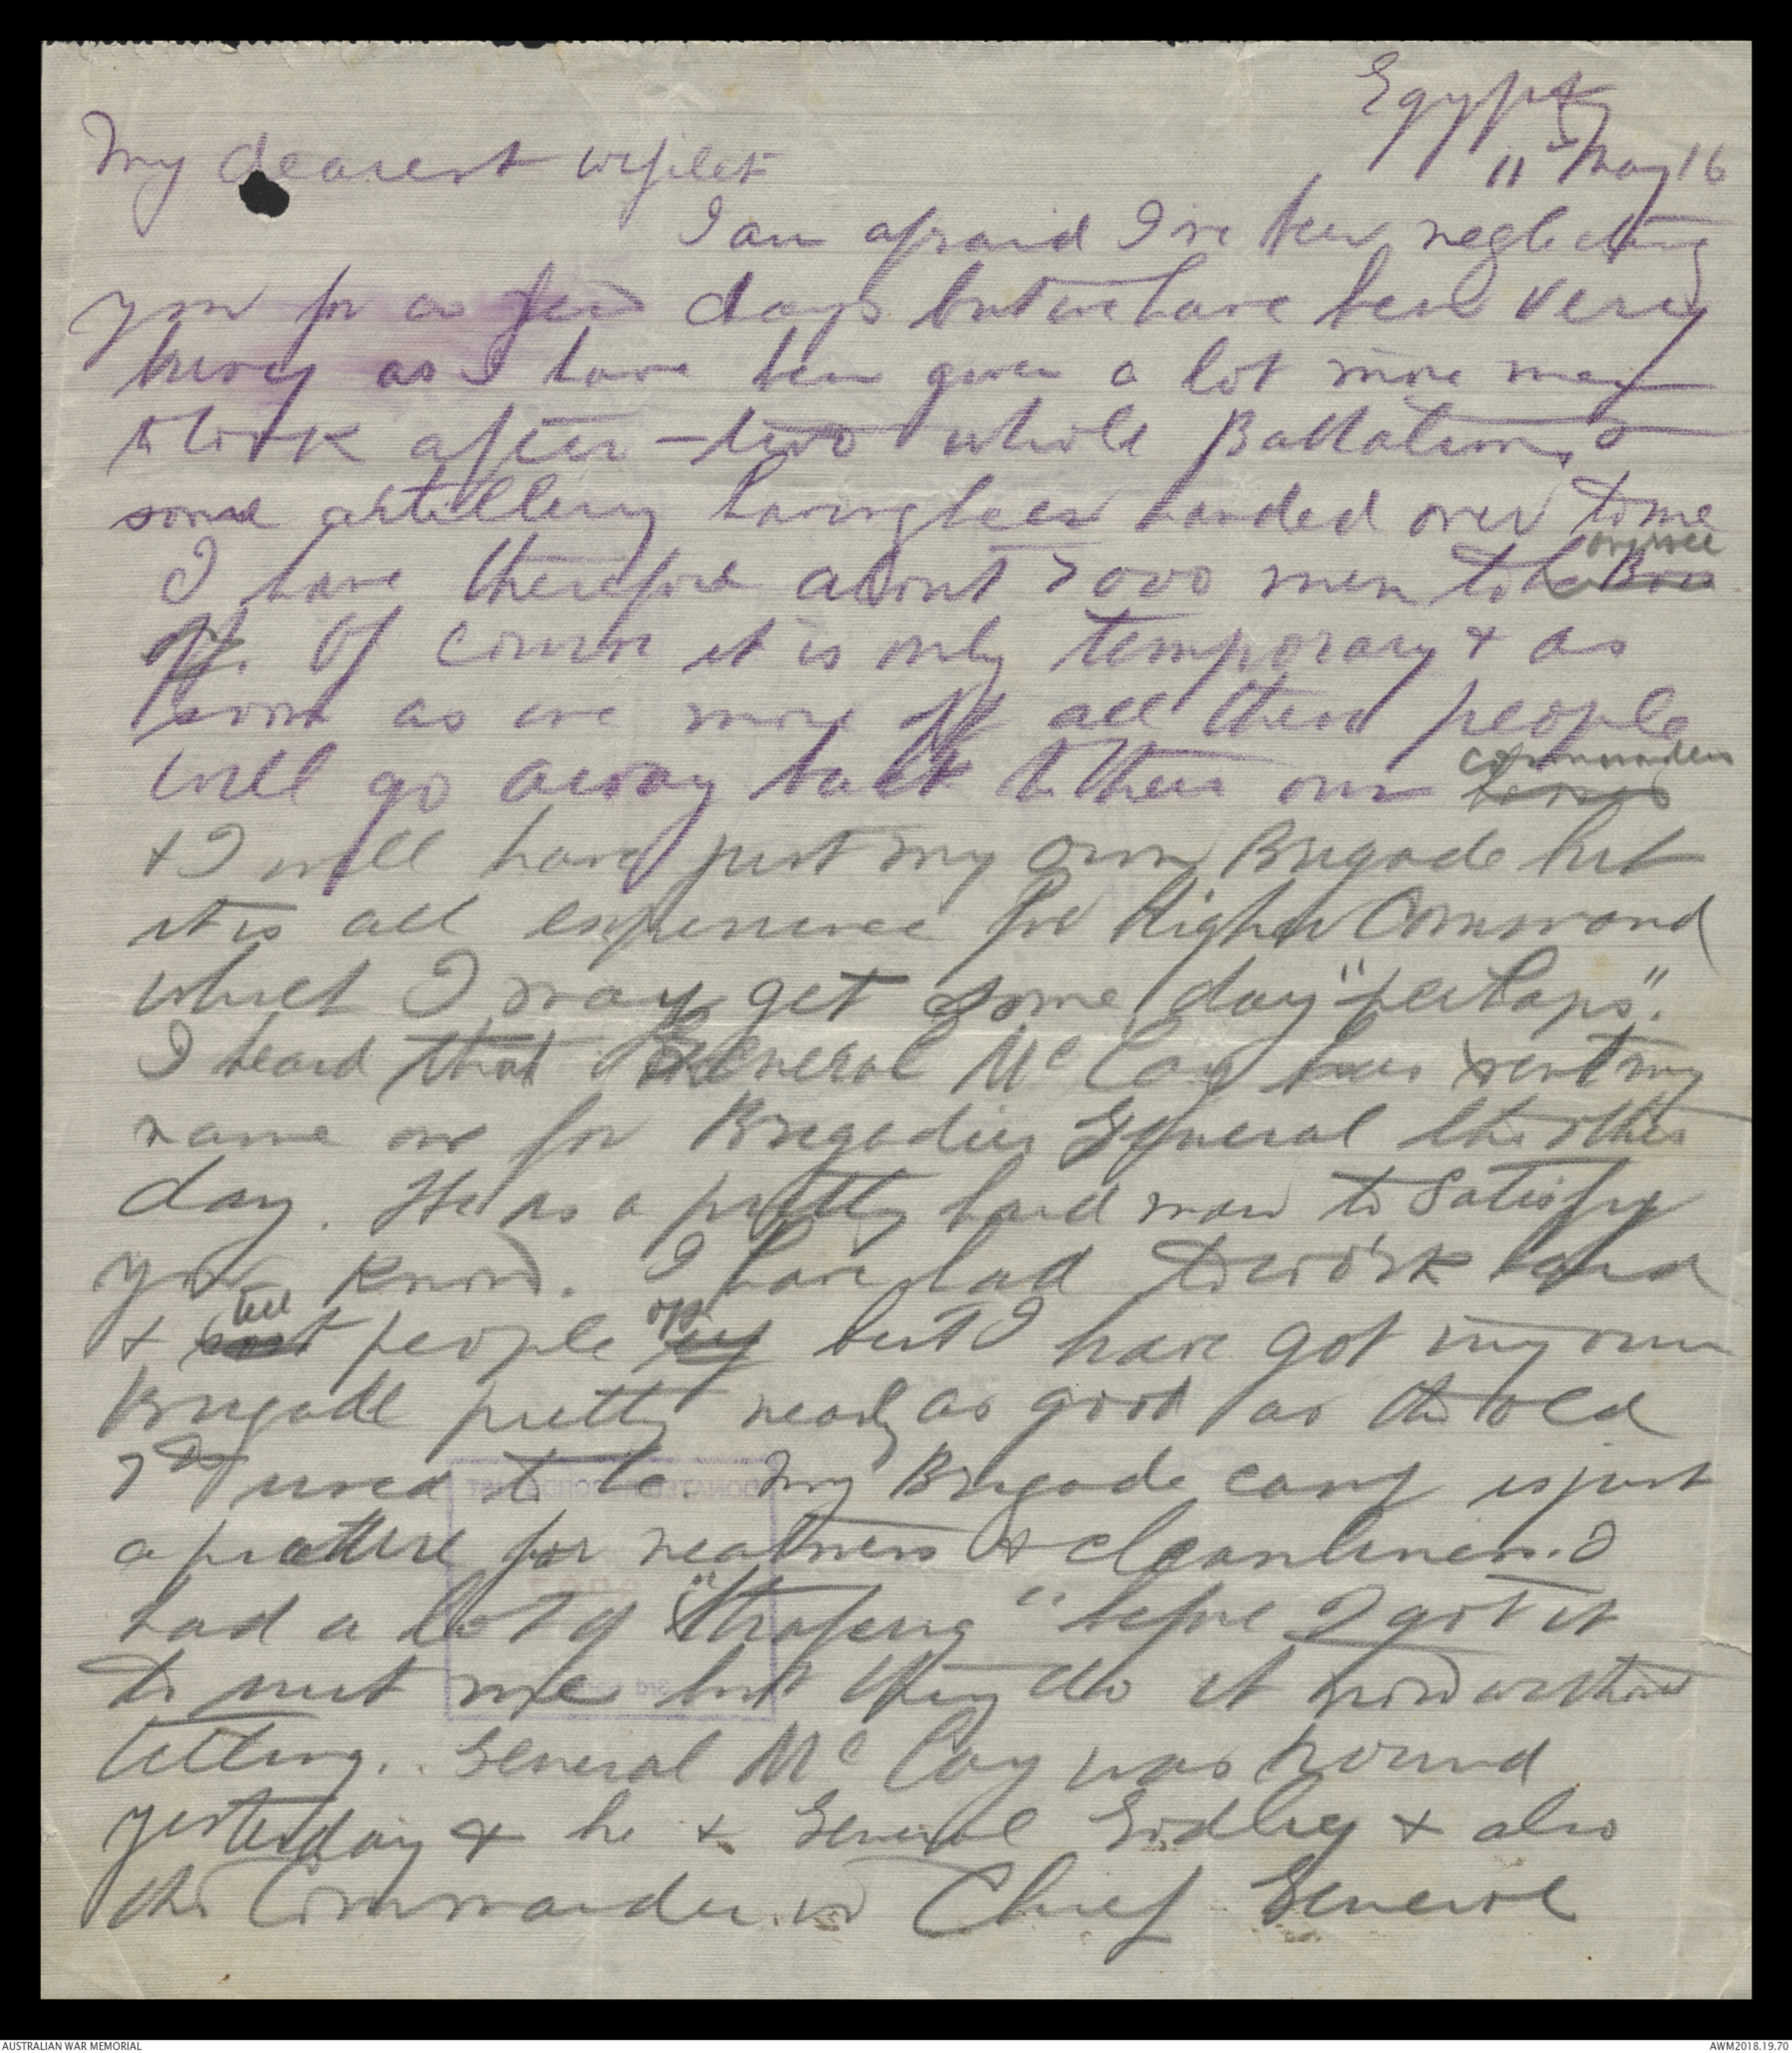 Egypt
11th May 16
My dearest wifelet
I am afraid I've been neglecting
you for a few days but we have been very
busy as I have been given a lot more men
to look after – two whole Battalions &
some artillery having been handed over to me
I have therefore about 7000 men to be Boss oversee
of. Of course it is only temporary & as
soon as we move off all these people
will go away back to their own commanders
& I will have just my own Brigade but
it is all experience for Higher Command
which I may get some day "perhaps".
I heard that General McCay has sent my
name on for Brigadier General the other
day. He is a pretty hard man to satisfy
you know. I have had to work hard
& tell people off but I have got my own
Brigade pretty nearly as good as the old
7th used to be. My Brigade camp is just
a picture for neatness & cleanliness. I
had a lot of "strafeing" before I got it
to suit me but they do it now without
telling. General McCay was round
yesterday & he & General Godley & also
the Commander in Chief General
AUSTRALIAN WAR MEMORIAL
AWM2018.19.70